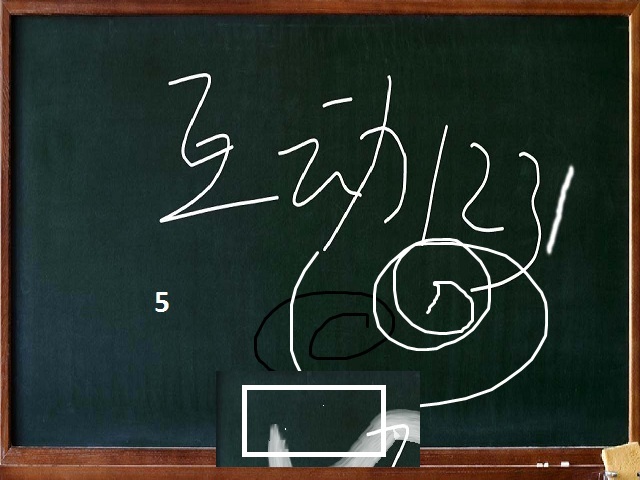 互动123
5